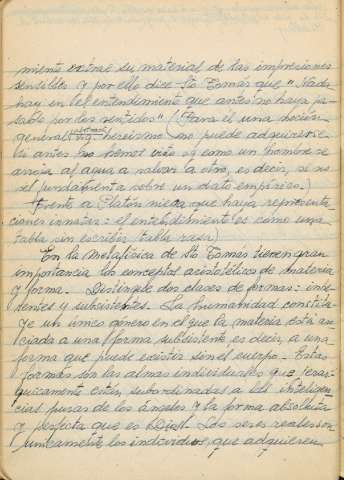 miento extrae su material de las impresiones
sensibles y por ello dice Sto Tomás que "Nada
hay en el entendimiento que antes no haya pa-
sado por los sentidos" (Para él una noción
general abstracta vig. heroismo no puede adquirirse
si antes no hemos visto vg como un hombre se
arroja al agua a salvar a otro, es decir, si no
se fundamenta sobre un dato empírico.)
Frente a Platón niega que haya representa-
ciones innatas: el entendimiento es como una
tabla sin escribir tabla rasa)
En la metafísica de Sto Tomás tienen gran
importancia los conceptos aristotélicos de materia
y forma. Distingue dos clases de formas: inhe-
rentes y subsistentes. La humanidad constitu-
ye un único género en el que la materia está aso-
ciada a una forma subsistente es decir, a una
forma que puede existir sin el cuerpo. Estas
formas son las almas individuales que jerar-
quicamente están subordinadas a las inteligen-
cias puras de los ángeles y la forma absoluta
y perfecta que es Dios. Los seres reales son
únicamente los individuos que adquieren